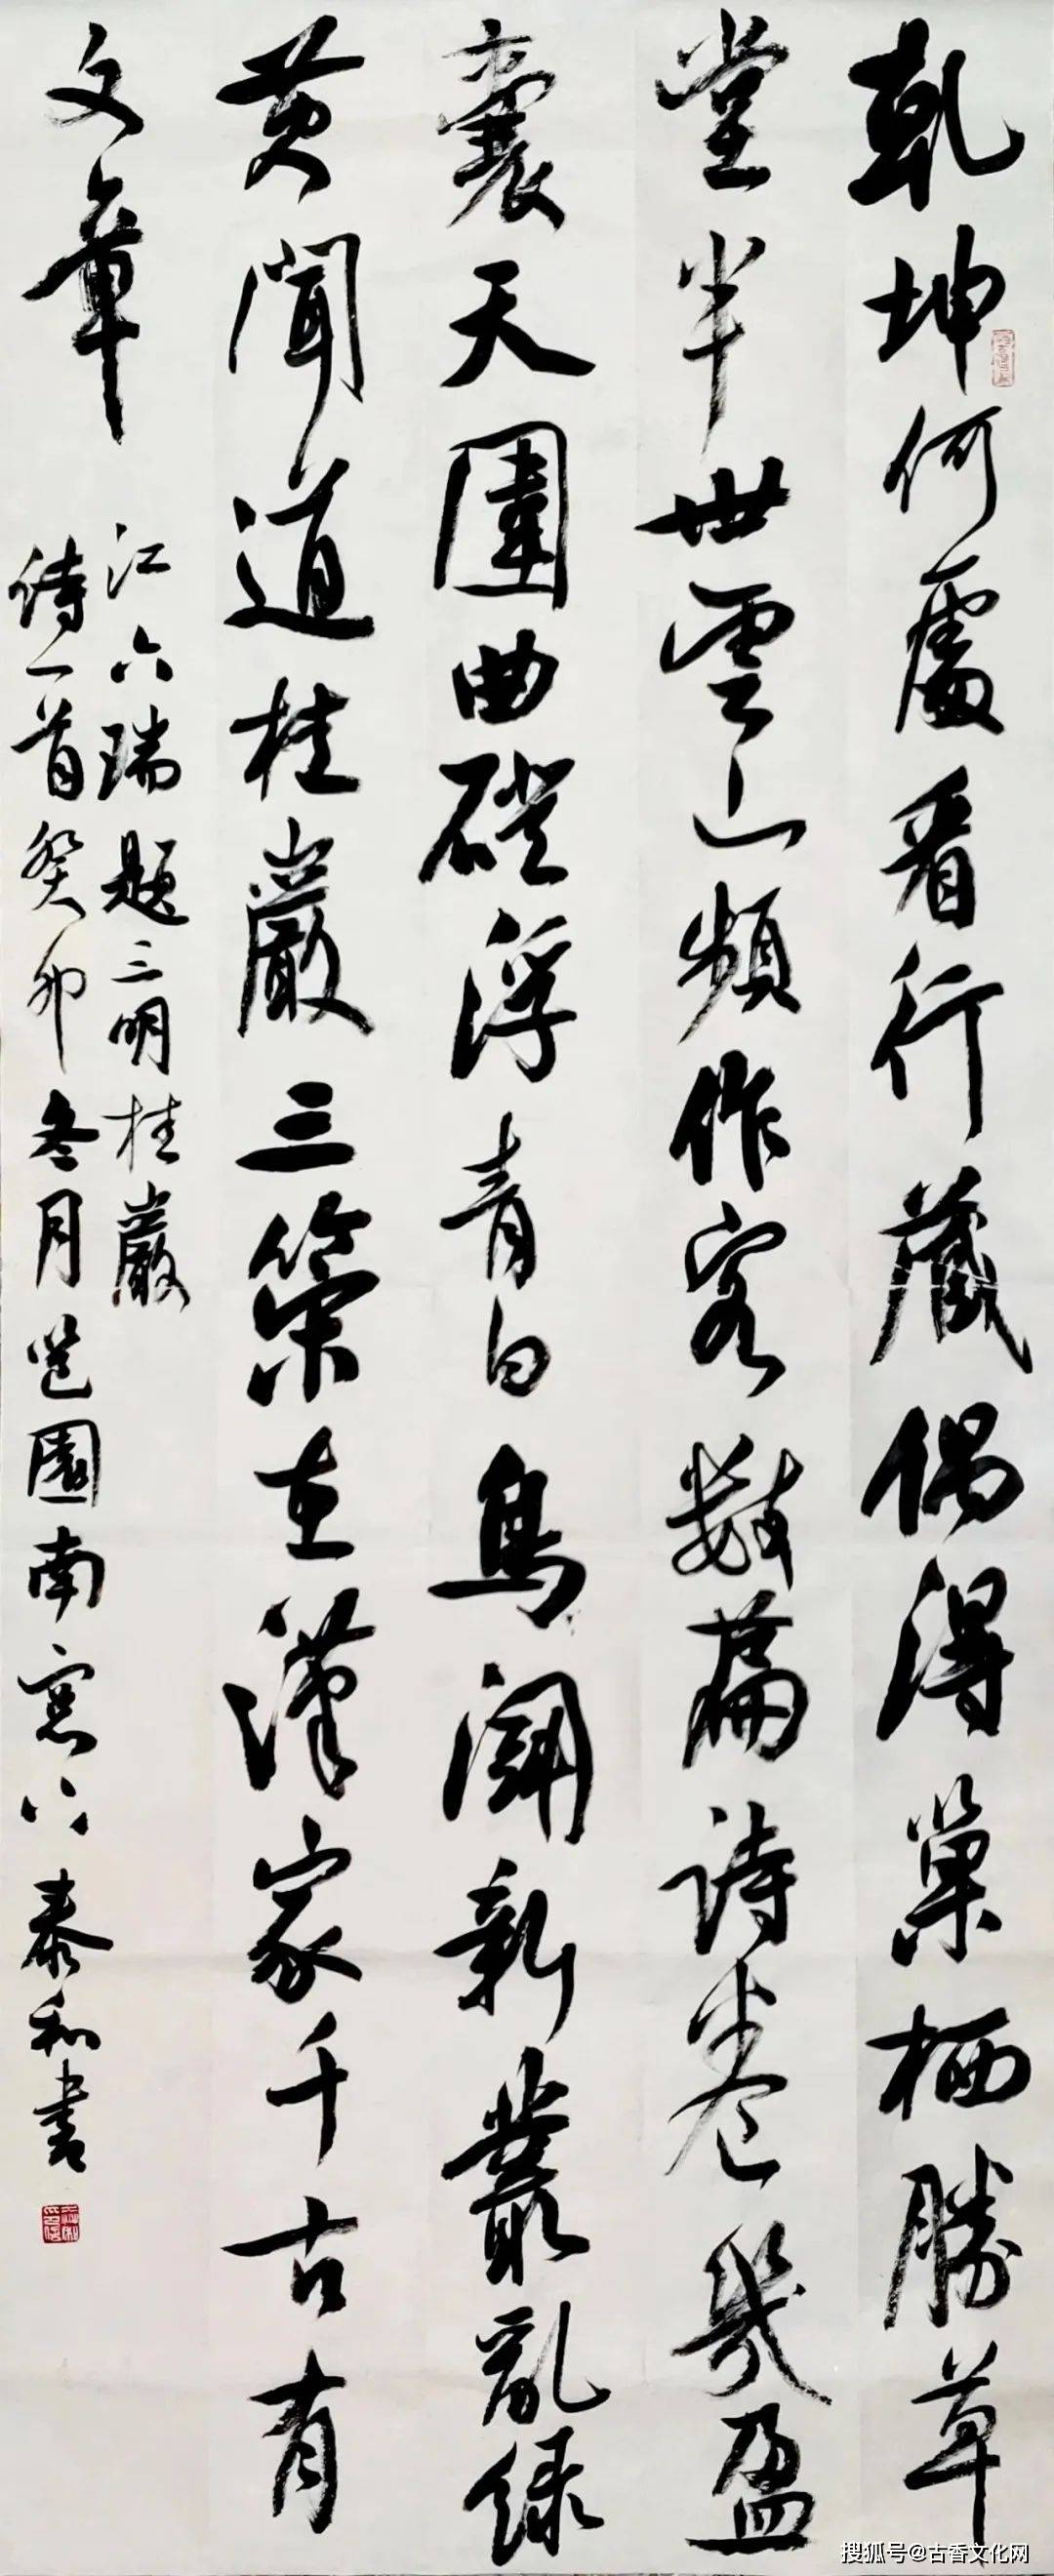 乾坤何處看行藏偶得巢栖勝草
堂半世雲山頻作客數篇詩卷幾盈
囊天圍曲磴浮青白鳥閙新叢亂綠
黄聞道桂巖三策在漢家千古有
文章
江六瑞題三明桂巖
詩一首癸卯冬月邕園南窓下泰和書
搜狐号@古香文化网